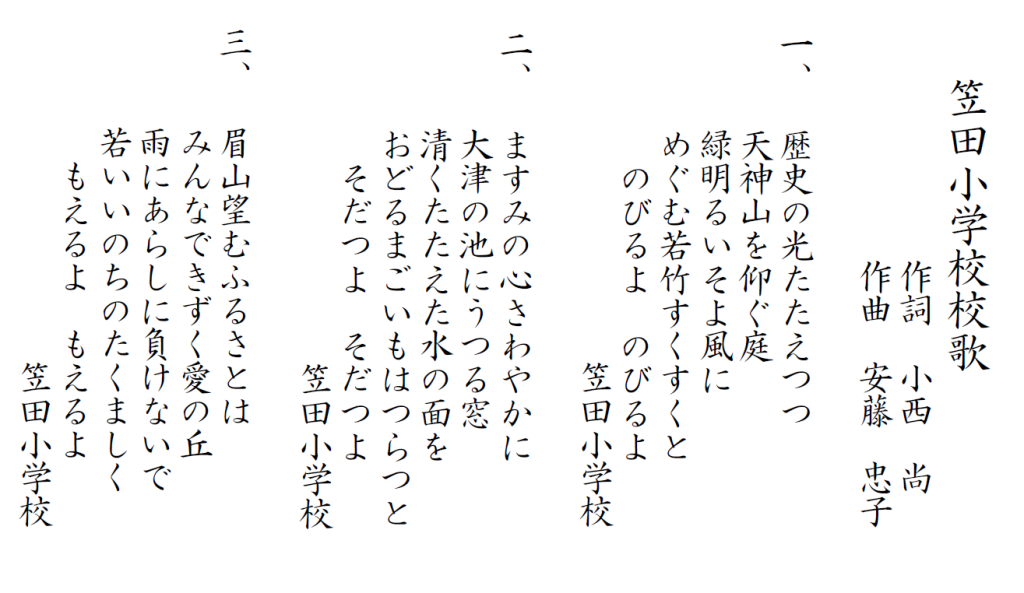 笠田小学校校歌
作詞　小西　尚
作曲　安藤　忠子
一、
歴史の光たたえつつ
天神山を仰ぐ庭
緑明るいそよ風に
めぐむ若竹すくすくと
のびるよ　のびるよ
笠田小学校
二、
ますみの心さわやかに
大津の池にうつる窓
清くたたえた水の面を
おどるまごいもはつらつと
そだつよ　そだつよ
笠田小学校
三、
眉山望むふるさとは
みんなできずく愛の丘
雨にあらしに負けないで
若いいのちのたくましく
もえるよ　もえるよ
笠田小学校